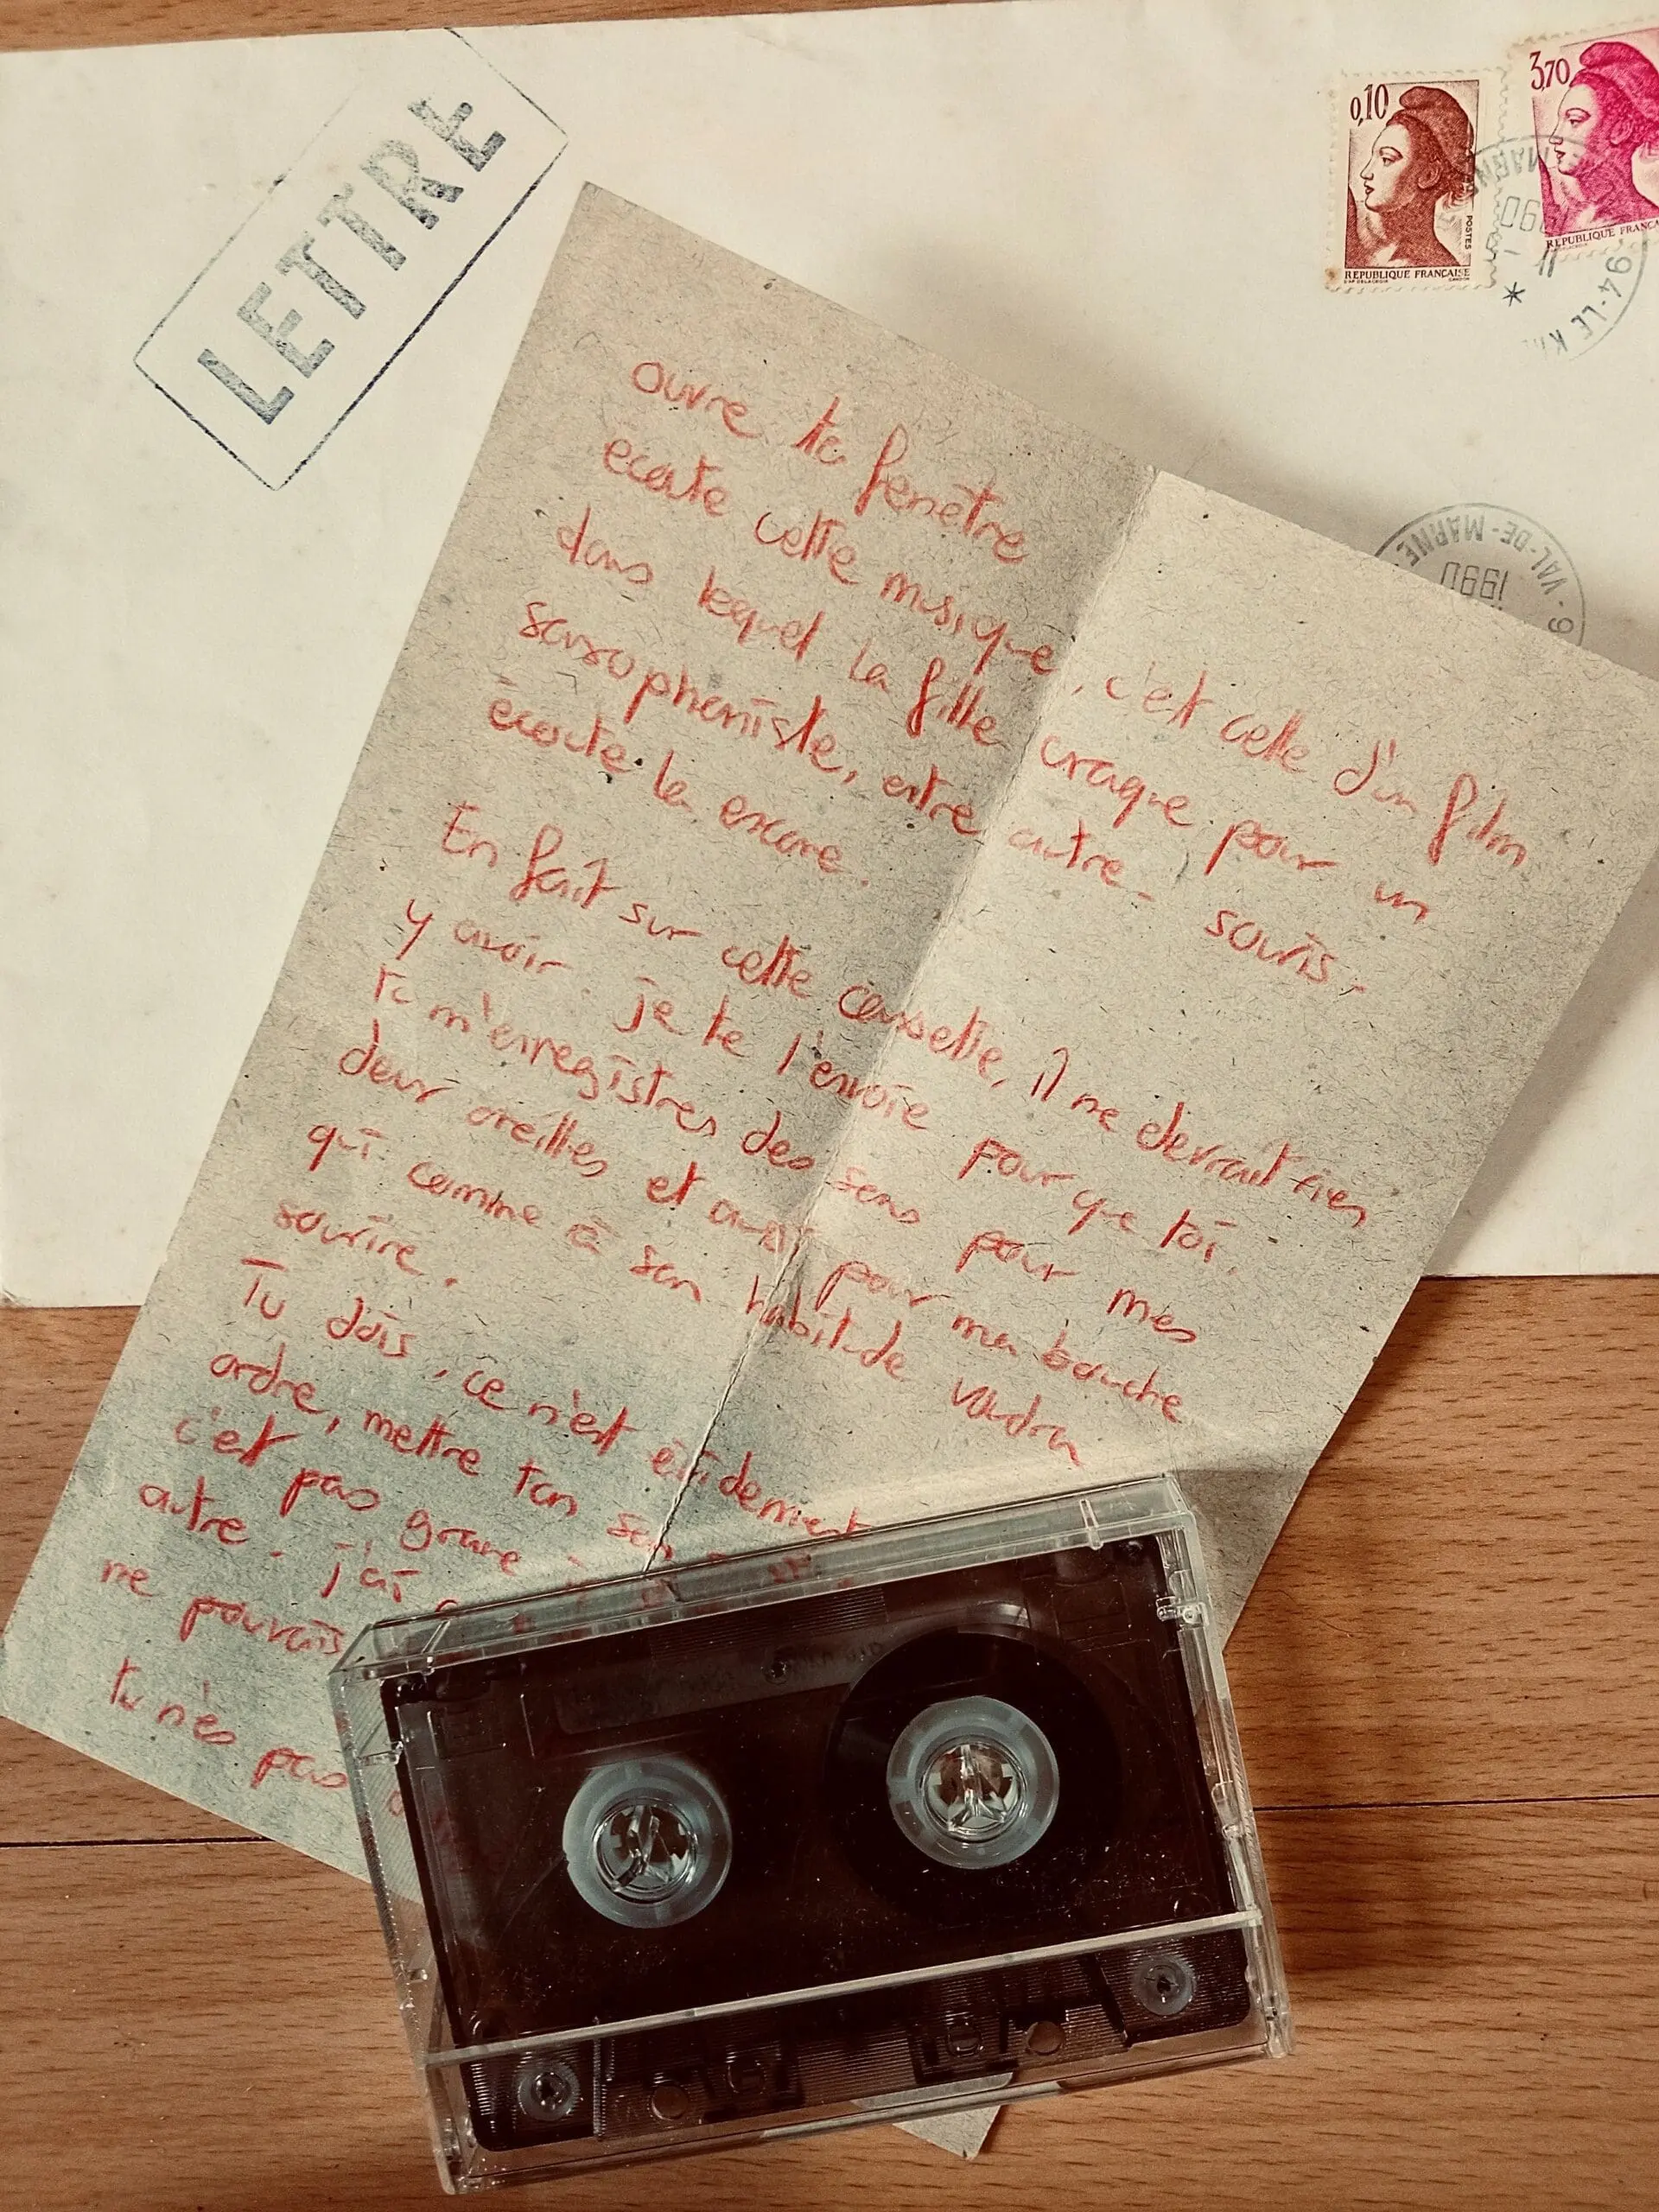 LETTRE
0,10
POSTES
REPUBLIQUE FRANÇAISE
3,70
REPUBLIQUE FRANÇA
1990
94-LE K
VAL-DE-MARNE
1990
ouvre ta fenêtre
écoute cette musique, c'est celle d'un film
dans lequel la fille craque pour un
saxophoniste, entre autre - souris.
écoute la encore.
En fait sur cette cassette, il ne devrait rien
y avoir. je te l'envoie pour que toi,
tu m'enregistres des sons pour mes
deux oreilles et aussi pour ma bouche
qui comme à son habitude voudra
sourire.
Tu dois, ce n'est évidemment
ordre, mettre ton son
c'est pas grave
autre. j'ai
ne pouvais
tu n'es pas